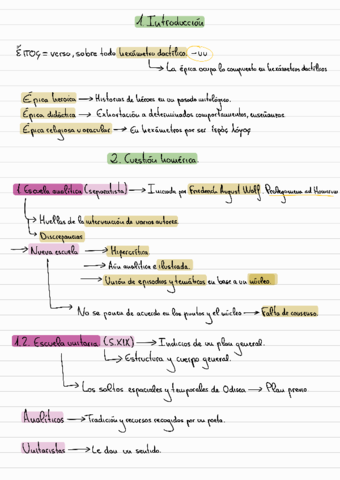 1. Introducción
Ἔπος = verso, sobre todo hexámetro dactílico. –∪∪
→ La épica ocupa lo compuesto en hexámetros dactílicos
Épica heroica → Historias de héroes en un pasado mitológico.
Épica didáctica → Exhortación a determinados comportamientos, enseñanzas.
Épica religiosa u oracular → En hexámetros por ser ἱερός λόγος
2. Cuestión homérica
1. Escuela analítica (separatista) → Iniciada por Friederich August Wolf. Prolegomena ad Homerum
→ Huellas de la intervención de varios autores.
→ Discrepancias
→ Nueva escuela → Hipercrítica.
→ Aún analítica e ilustrada.
→ Unión de episodios y temáticas en base a un núcleo.
→ No se ponen de acuerdo en los puntos y el núcleo → Falta de consenso.
1.2. Escuela unitaria (S.XIX) → Indicios de un plan general.
→ Estructura y cuerpo general.
→ Los saltos espaciales y temporales de Odisea → Plan previo.
Analíticos → Tradición y recursos recogidos por un poeta.
Unitaristas → Le dan un sentido.